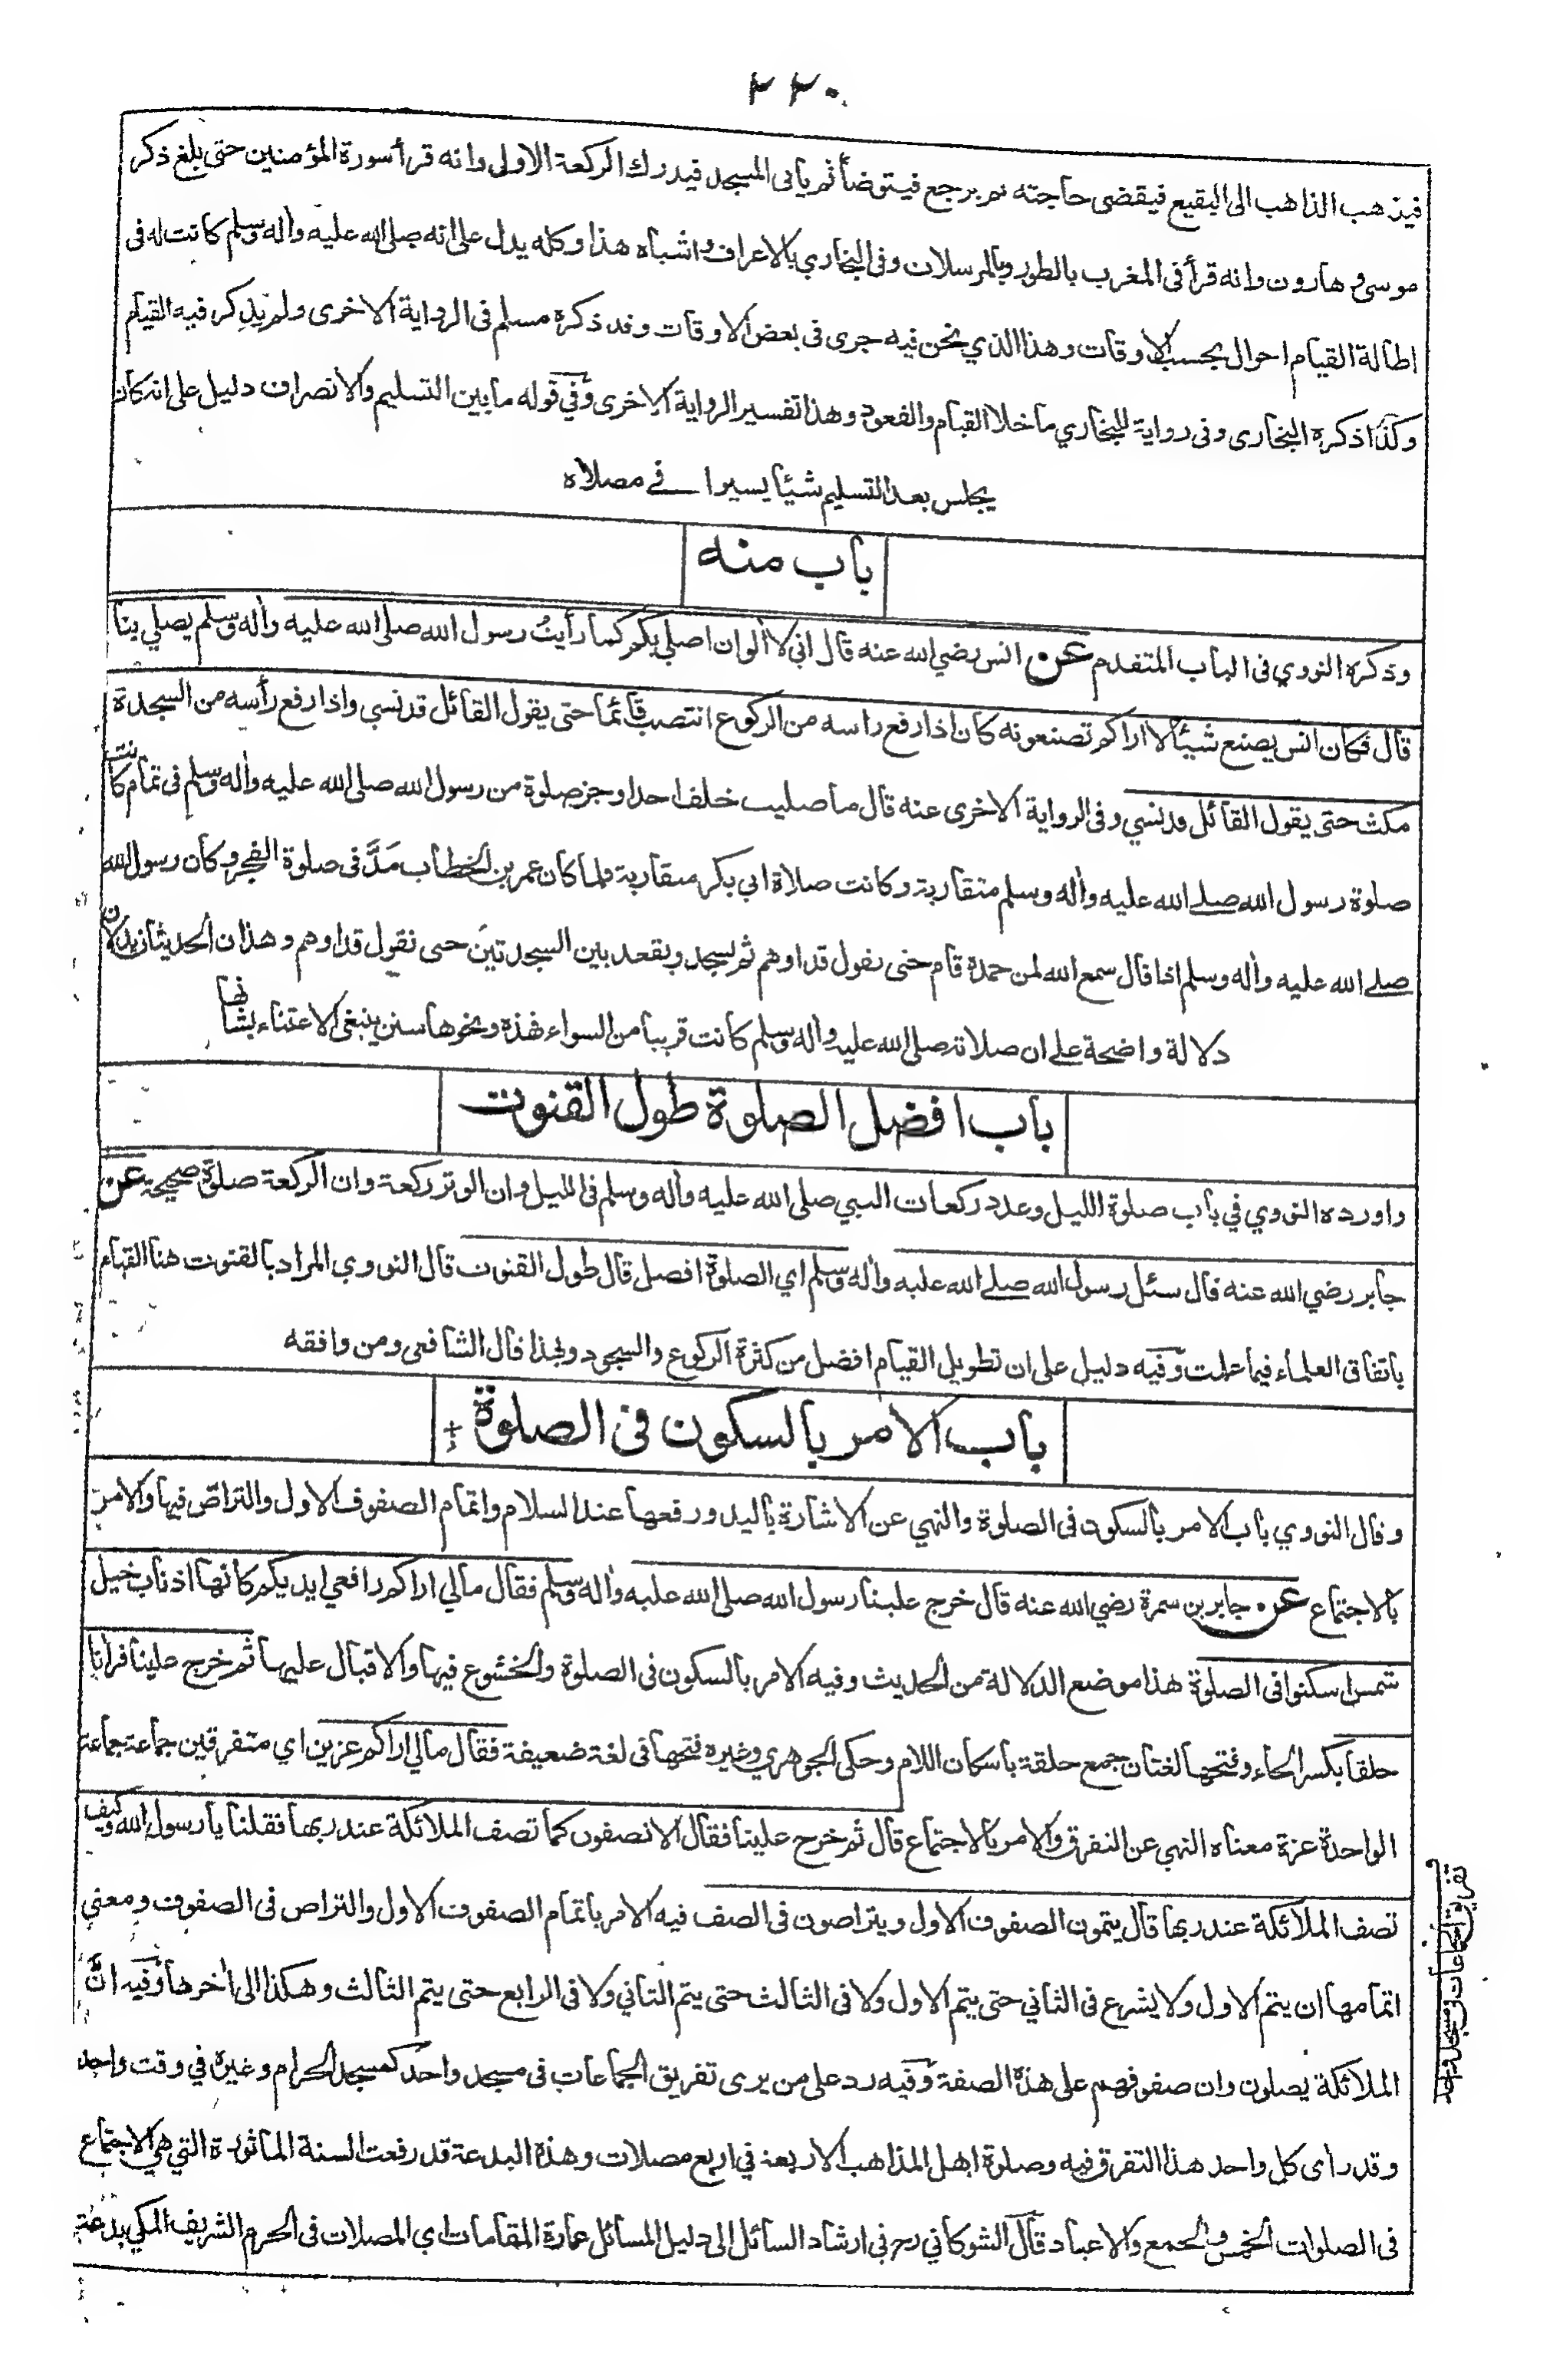 ٢٢٠
فيذهب الذاهب الى البقيع فيقضى حاجته ثم يرجع فيتوضأ ثم ياتى المسجد فيدرك الركعة الاولى وانه قرأ سورة المؤمنين حتى بلغ ذكر
موسى وهارون وانه قرأ فى المغرب بالطور وبالمرسلات وفى البخاري بالاعراف واشباه هذا وكله يدل على انه صلى الله عليه واله وسلم كانت له فى
اطالة القيام احوال بحسب الاوقات وهذا الذي نحن فيه جرى فى بعض الاوقات وقد ذكره مسلم فى الرواية الاخرى ولم يذكر فيه القيام
وكذا ذكره البخارى وفى رواية للبخاري ما خلا القيام والقعود وهذا تفسير الرواية الاخرى وفي قوله ما بين التسليم والانصراف دليل على انه كان
يجلس بعد التسليم شيئا يسيرا فى مصلاه
باب منه
وذكره النووي فى الباب المتقدم عن انس رضي الله عنه قال اني لا الوان اصلي بكم كما رأيت رسول الله صلى الله عليه واله وسلم يصلي بنا
قال فكان انس يصنع شيئا لا اراكم تصنعونه كان اذا رفع راسه من الركوع انتصب قائما حتى يقول القائل قد نسي واذا رفع رأسه من السجدة
مكث حتى يقول القائل قد نسي وفى الرواية الاخرى عنه قال ما صليت خلف احد اوجز صلوة من رسول الله صلى الله عليه واله وسلم فى تمام كانت
صلوة رسول الله صلى الله عليه واله وسلم متقاربة وكانت صلاة ابي بكر متقاربة فلما كان عمر بن الخطاب مَدَّ فى صلوة الفجر وكان رسول الله
صلے الله عليه واله وسلم اذا قال سمع الله لمن حمده قام حتى نقول قد اوهم ثم يسجد ويقعد بين السجدتين حتى نقول قد اوهم وهذان الحديثان يدلان
دلالة واضحة على ان صلاته صلى الله عليه واله وسلم كانت قريبا من السواء فهذه ونحوها سنن ينبغى الاعتناء بشانها
باب افضل الصلوة طول القنوت
واورده النووي في باب صلوة الليل وعدد ركعات النبي صلى الله عليه واله وسلم فى الليل وان الوتر ركعة وان الركعة صلوة صحيحة عن
جابر رضي الله عنه قال سئل رسول الله صلے الله عليه واله وسلم اي الصلوة افضل قال طول القنوت قال النووي المراد بالقنوت هنا القيام
باتفاق العلماء فيما علمت وفيه دليل على ان تطويل القيام افضل من كثرة الركوع والسجود ولهذا قال الشافعى ومن وافقه
باب الامر بالسكون فى الصلوة
وقال النووي باب الامر بالسكون فى الصلوة والنهي عن الاشارة باليد ورفعها عند السلام واتمام الصفوف الاول والتراصّ فيها والامر
بالاجتماع عن جابر بن سمرة رضي الله عنه قال خرج علينا رسول الله صلى الله عليه واله وسلم فقال مالي اراكم رافعي ايديكم كانها اذناب خيل
شمس اسكنوا فى الصلوة هذا موضع الدلالة من الحديث وفيه الامر بالسكون فى الصلوة والخشوع فيها والاقبال عليها ثم خرج علينا فرانا
حلقا بكسر الحاء وفتحها لغتان جمع حلقة باسكان اللام وحكى الجوهري وغيره فتحها فى لغة ضعيفة فقال مالي اراكم عزين اي متفرقين جماعة جماعة
الواحدة عزة معناه النهي عن التفرق والامر بالاجتماع قال ثم خرج علينا فقال الا تصفون كما تصف الملائكة عند ربها فقلنا يا رسول الله وكيف
تصف الملائكة عند ربها قال يتمون الصفوف الاول ويتراصون فى الصف فيه الامر باتمام الصفوف الاول والتراص فى الصفوف ومعنى
اتمامها ان يتم الاول ولا يشرع فى الثاني حتى يتم الاول ولا فى الثالث حتى يتم الثاني ولا فى الرابع حتى يتم الثالث وهكذا الى اخرها وفيه انَّ
الملائكة يصلون وان صفوفهم على هذه الصفة وفيه رد على من يرى تفريق الجماعات فى مسجد واحد كمسجد الحرام وغيره في وقت واحد
وقد رأى كل واحد هذا التفرق فيه وصلوة اهل المذاهب الاربعة في اربع مصلات وهذه البدعة قد رفعت السنة الماثورة التي هي الاجتماع
فى الصلوات الخمس والجمع والاعياد قال الشوكاني رح فى ارشاد السائل الى دليل المسائل عمارة المقامات اي المصلات فى الحرم الشريف المكي بدعة
تفريق الجماعات فى مسجد واحد